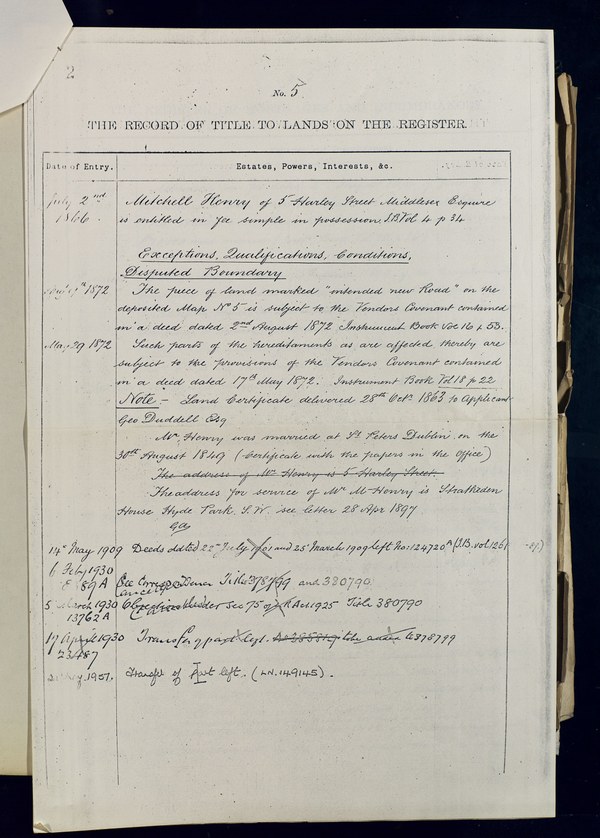 2
No. 5
THE RECORD OF TITLE TO LANDS ON THE REGISTER.
Date of Entry.
Estates, Powers, Interests, &c.
July 2nd 1866
Mitchell Henry of 5 Harley Street Middlesex Esquire
is entitled in fee simple in possession. I.B. Vol 4 p 34
Exceptions, Qualifications, Conditions,
Disputed Boundary
1872 The piece of land marked "intended new Road" on the
deposited Map No 5 is subject to the Vendors Covenant contained
in a deed dated 2nd August 1872 Instrument Book Vol 16 p 53.
May 29 1872 Such parts of the hereditaments as are affected thereby are
subject to the provisions of the Vendors Covenant contained
in a deed dated 17th May 1872. Instrument Book Vol 18 p 22
Note - Land Certificate delivered 28th Octr 1863 to Applicant
Geo Duddell Esq
Mr Henry was married at St Peters Dublin on the
30th August 1849 (Certificate with the papers in the Office)
The address of Mr Henry is 5 Harley Street
The address for service of Mr M Henry is Stratheden
House Hyde Park S.W. see letter 28 Apr 1897
14 May 1909 Deeds dated 22nd July 1901 and 25 March 1909 left No: 124720A (I.B. vol. 126
6 Feby 1930
89A See Title 378799 and 380790
5 March 1930 see 75 of Act 1925 Title 380790
13762A
17 April 1930 Transfer of part left. 378799
23487
1951. Transfr of Part left. (LN. 149145).